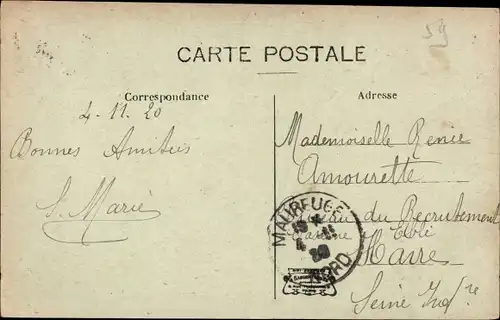 59
CARTE POSTALE
Correspondance
Adresse
4.11.20
Bonnes Amitiés
S. Marié
Mademoiselle Renée
Amourette
du Recrutement
Havre
Seine Infre
MAUBEUGE
NORD